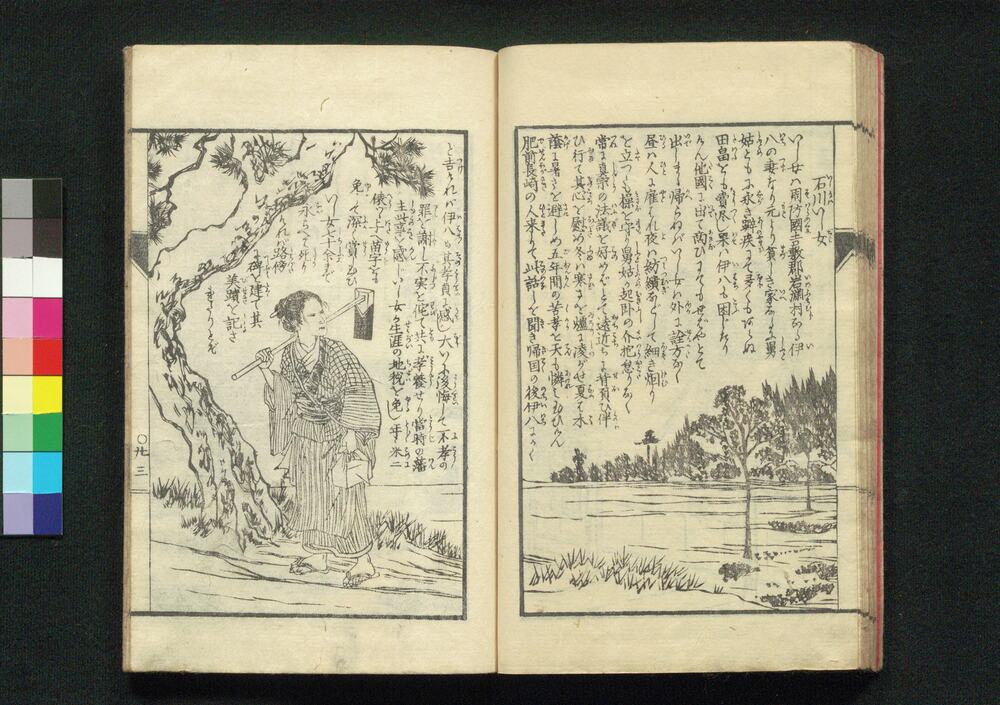 石川いし女
いし女ハ周防國吉敷郡岩淵村なる伊
八の妻なり元より貧しき家なるに舅
姑ともに永き癖疾にて手くるしからぬ
田畠とも賣尽し果ハ伊八も困じたり
けん他國に出て商ひすてもせばやとて
出しまま帰らねバいし女ハ外に詮方なく
昼ハ人に雇はれ夜ハ紡績などして細き烟り
を立つつも操を守り舅姑の起卧の介抱怠りなく
常に真宗の法議を好めバとて遠近に背負ひ伴
ひ行て其心を慰め冬ハ寒さを爐に凌がせ夏ハ木
蔭に暑さを避しめ五年間の苦孝を天も憐しむひけん
肥前長崎の人来りて此話しを聞き帰国の後伊八にかく
と告けれバ伊八も其孝貞に感じ大いに後悔して不孝の
罪を謝し不実を侘て共に孝養せり當時の藩
主其事を感じいし女が生涯の地税を免し年々米二
俵を与へ苗字を
免して深く賞しむ
いし女七十余にて
永らへて死り
けれバ路傍
に碑を建て其
美蹟を記さ
れたりとぞ
〇廿三